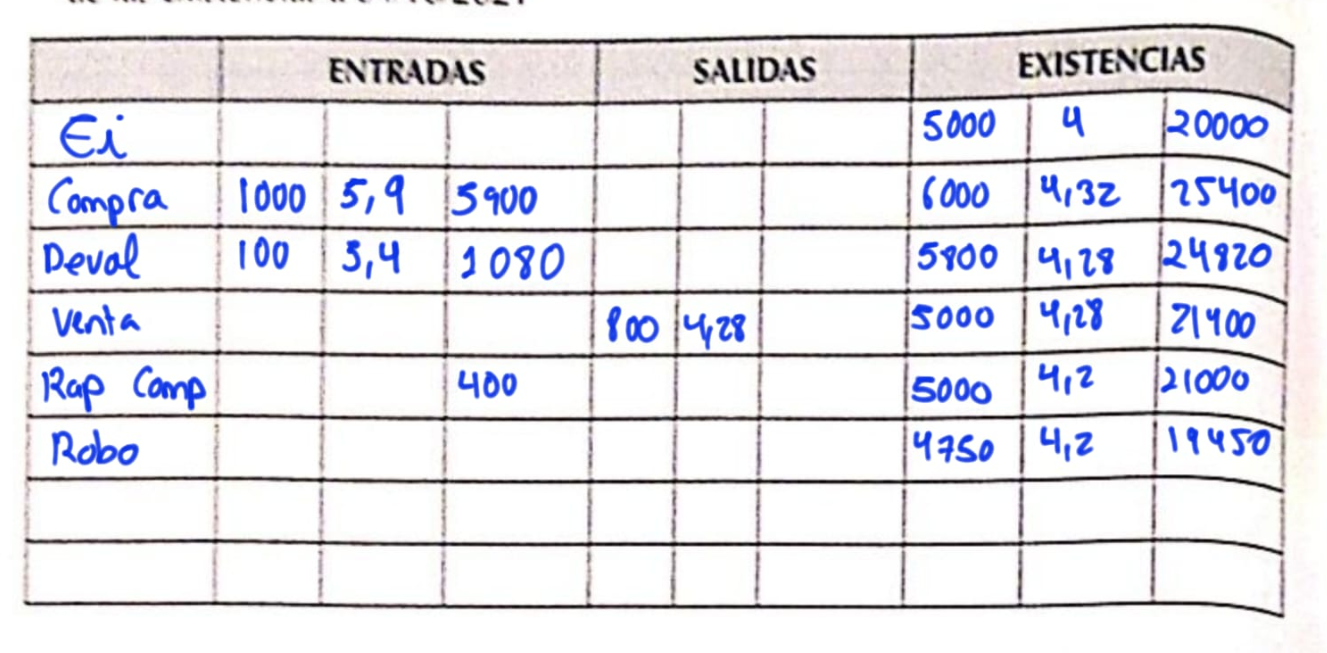 ENTRADAS SALIDAS EXISTENCIAS
Ei 5000 4 20000
Compra 1000 5,9 5900 6000 4,32 25400
Deval 100 5,4 1080 5800 4,28 24820
Venta 800 4,28 5000 4,28 21400
Rap Comp 400 5000 4,2 21000
Robo 4750 4,2 19450